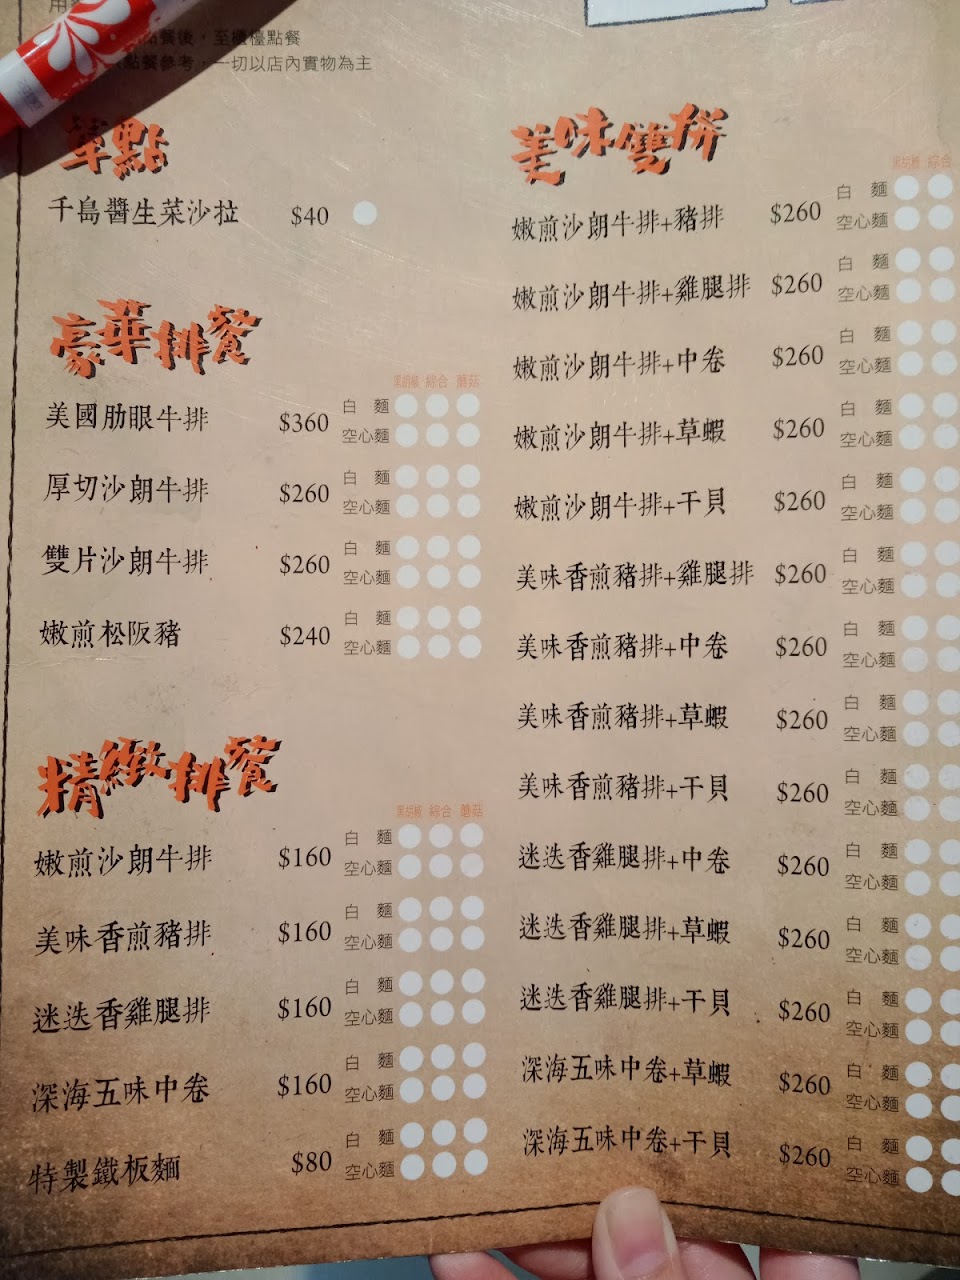 點餐後，至櫃檯點餐
點餐參考，一切以店內實物為主
單點
千島醬生菜沙拉 $40
豪華排餐
黑胡椒 綜合 蘑菇
美國肋眼牛排 $360 白麵
空心麵
厚切沙朗牛排 $260 白麵
空心麵
雙片沙朗牛排 $260 白麵
空心麵
嫩煎松阪豬 $240 白麵
空心麵
精緻排餐
黑胡椒 綜合 蘑菇
嫩煎沙朗牛排 $160 白麵
空心麵
美味香煎豬排 $160 白麵
空心麵
迷迭香雞腿排 $160 白麵
空心麵
深海五味中卷 $160 白麵
空心麵
特製鐵板麵 $80 白麵
空心麵
美味雙拼
黑胡椒 綜合
嫩煎沙朗牛排+豬排 $260 白麵
空心麵
嫩煎沙朗牛排+雞腿排 $260 白麵
空心麵
嫩煎沙朗牛排+中卷 $260 白麵
空心麵
嫩煎沙朗牛排+草蝦 $260 白麵
空心麵
嫩煎沙朗牛排+干貝 $260 白麵
空心麵
美味香煎豬排+雞腿排 $260 白麵
空心麵
美味香煎豬排+中卷 $260 白麵
空心麵
美味香煎豬排+草蝦 $260 白麵
空心麵
美味香煎豬排+干貝 $260 白麵
空心麵
迷迭香雞腿排+中卷 $260 白麵
空心麵
迷迭香雞腿排+草蝦 $260 白麵
空心麵
迷迭香雞腿排+干貝 $260 白麵
空心麵
深海五味中卷+草蝦 $260 白麵
空心麵
深海五味中卷+干貝 $260 白麵
空心麵